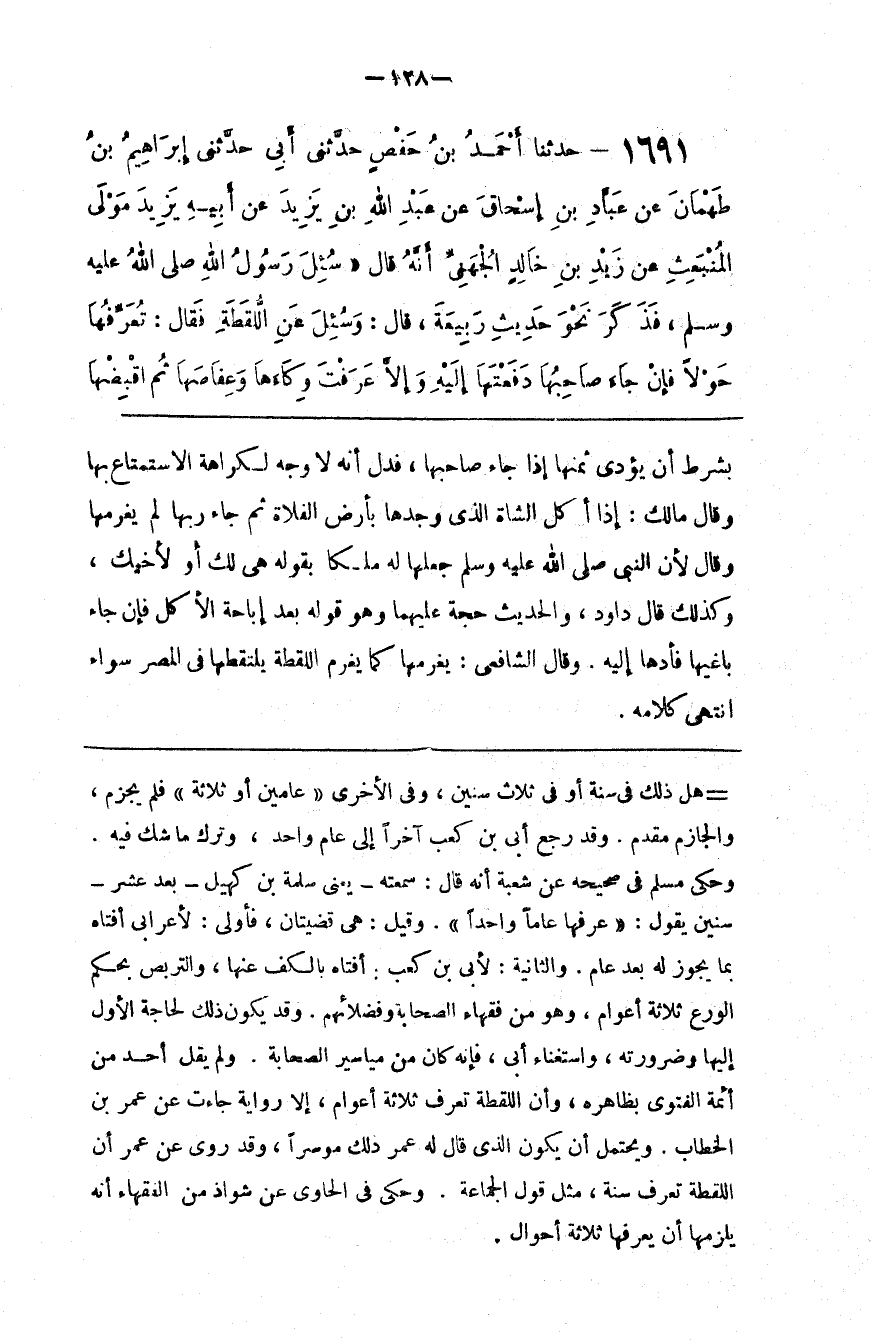 — ١٢٨ —
١٦٩١ – حدثنا أَحْمَدُ بنُ حَفْصٍ حدَّثنى أَبِى حدَّثنى إبرَاهِيمُ بنُ
طَهْمَانَ عن عَبَّادِ بنِ إسْحَاقَ عن عَبْدِ اللهِ بنِ يَزِيدَ عن أَبِيهِ يَزِيدَ مَوْلَى
المُنْبَعِثِ عن زَيْدِ بنِ خَالِدٍ الْجُهَنِىِّ أَنَّهُ قال « سُئِلَ رَسُولُ اللهِ صلى اللهُ عليه
وسلم ، فَذَكَرَ نَحْوَ حَدِيثِ رَبِيعَةَ ، قال : وَسُئِلَ عَنِ اللُّقَطَةِ فَقال : تُعَرِّفُهَا
حَوْلاً فإنْ جاءَ صاحِبُهَا دَفَعْتَهَا إلَيْهِ وَإلاَّ عَرَفْتَ وِكَاءَها وَعِفاصَهَا ثُم اقْبِضْهَا
بشرط أن يؤدى ثمنها إذا جاء صاحبها ، فدل أنه لا وجه لكراهة الاستمتاع بها
وقال مالك : إذا أكل الشاة الذى وجدها بأرض الفلاة ثم جاء ربها لم يغرمها
وقال لأن النبى صلى الله عليه وسلم جعلها له ملكا بقوله هى لك أو لأخيك ،
وكذلك قال داود ، والحديث حجة عليهما وهو قوله بعد إباحة الأكل فإن جاء
باغيها فأدها إليه . وقال الشافعى : يغرمها كما يغرم اللقطة يلتقطها فى المصر سواء
انتهى كلامه .
= هل ذلك فى سنة أو فى ثلاث سنين ، وفى الأخرى « عامين أو ثلاثة » فلم يجزم ،
والجازم مقدم . وقد رجع أبى بن كعب آخراً إلى عام واحد ، وترك ما شك فيه .
وحكى مسلم فى صحيحه عن شعبة أنه قال : سمعته – يعنى سلمة بن كهيل – بعد عشر –
سنين يقول : « عرفها عاماً واحداً » . وقيل : هى قضيتان ، فأولى : لأعرابى أفتاه
بما يجوز له بعد عام . والثانية : لأبى بن كعب : أفتاه بالكف عنها ، والتربص بحكم
الورع ثلاثة أعوام ، وهو من فقهاء الصحابة وفضلائهم . وقد يكون ذلك لحاجة الأول
إليها وضرورته ، واستغناء أبى ، فإنه كان من مياسير الصحابة . ولم يقل أحد من
أئمة الفتوى بظاهره ، وأن اللقطة تعرف ثلاثة أعوام ، إلا رواية جاءت عن عمر بن
الخطاب . ويحتمل أن يكون الذى قال له عمر ذلك موسراً ، وقد روى عن عمر أن
اللقطة تعرف سنة ، مثل قول الجماعة . وحكى فى الحاوى عن شواذ من الفقهاء أنه
يلزمها أن يعرفها ثلاثة أحوال .